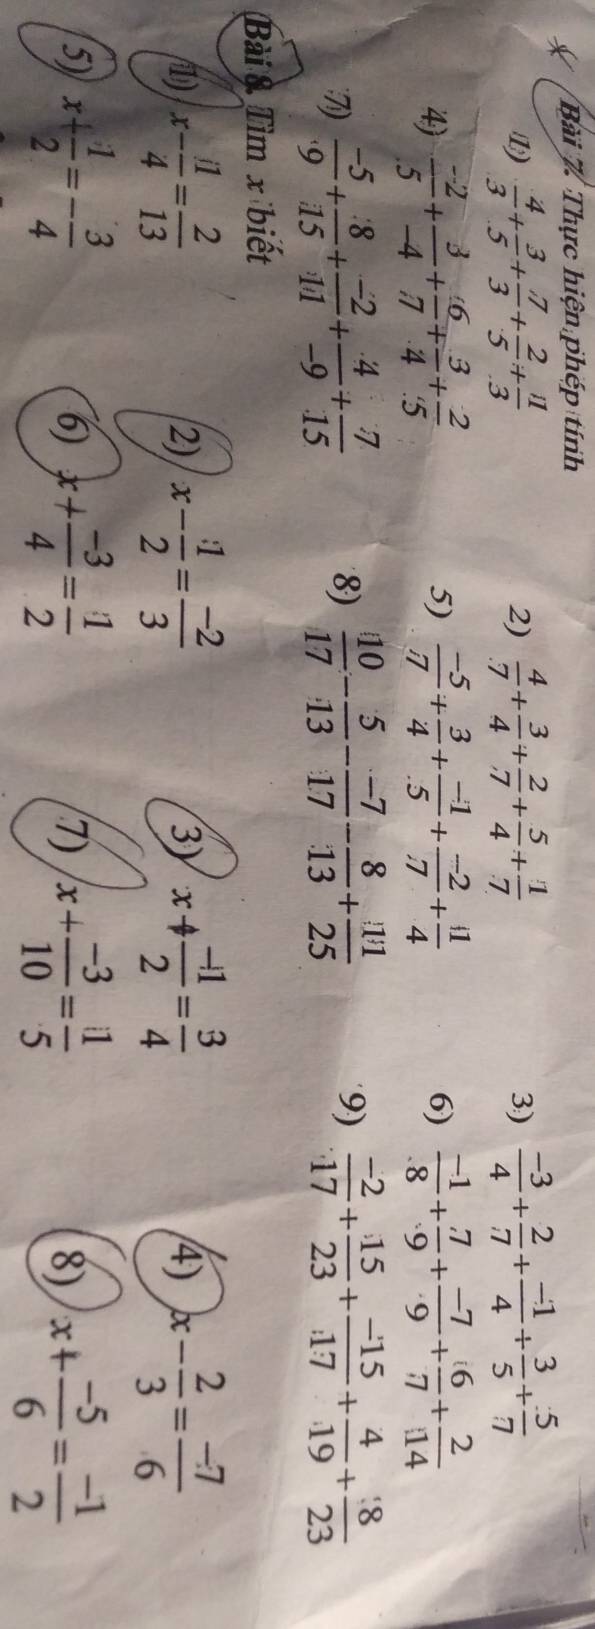 Bài 7. Thực hiện phép tính
1) 4/3 + 3/5 + 7/3 + 2/5 + 1/3 2) 4/7 + 3/4 + 2/7 + 5/4 + 1/7 3) -3/4 + 2/7 + -1/4 + 3/5 + 5/7
4) -2/5 + 3/-4 + 6/7 + 3/4 + 2/5 5) -5/7 + 3/4 + -1/5 + -2/7 + 1/4 6) -1/8 + 7/9 + -7/9 + 6/7 + 2/14
7) -5/9 + 8/15 + -2/11 + 4/-9 + 7/15 8) 10/17 - 5/13 - -7/17 - 8/13 + 11/25 9) -2/17 + 15/23 + -15/17 + 4/19 + 8/23
Bài 8. Tìm x biết
1) x - 1/4 = 2/13 2) x - 1/2 = -2/3 3) x + -1/2 = 3/4 4) x - 2/3 = -7/6
5) x + 1/2 = -3/4 6) x + -3/4 = 1/2 7) x + -3/10 = 1/5 8) x + -5/6 = -1/2